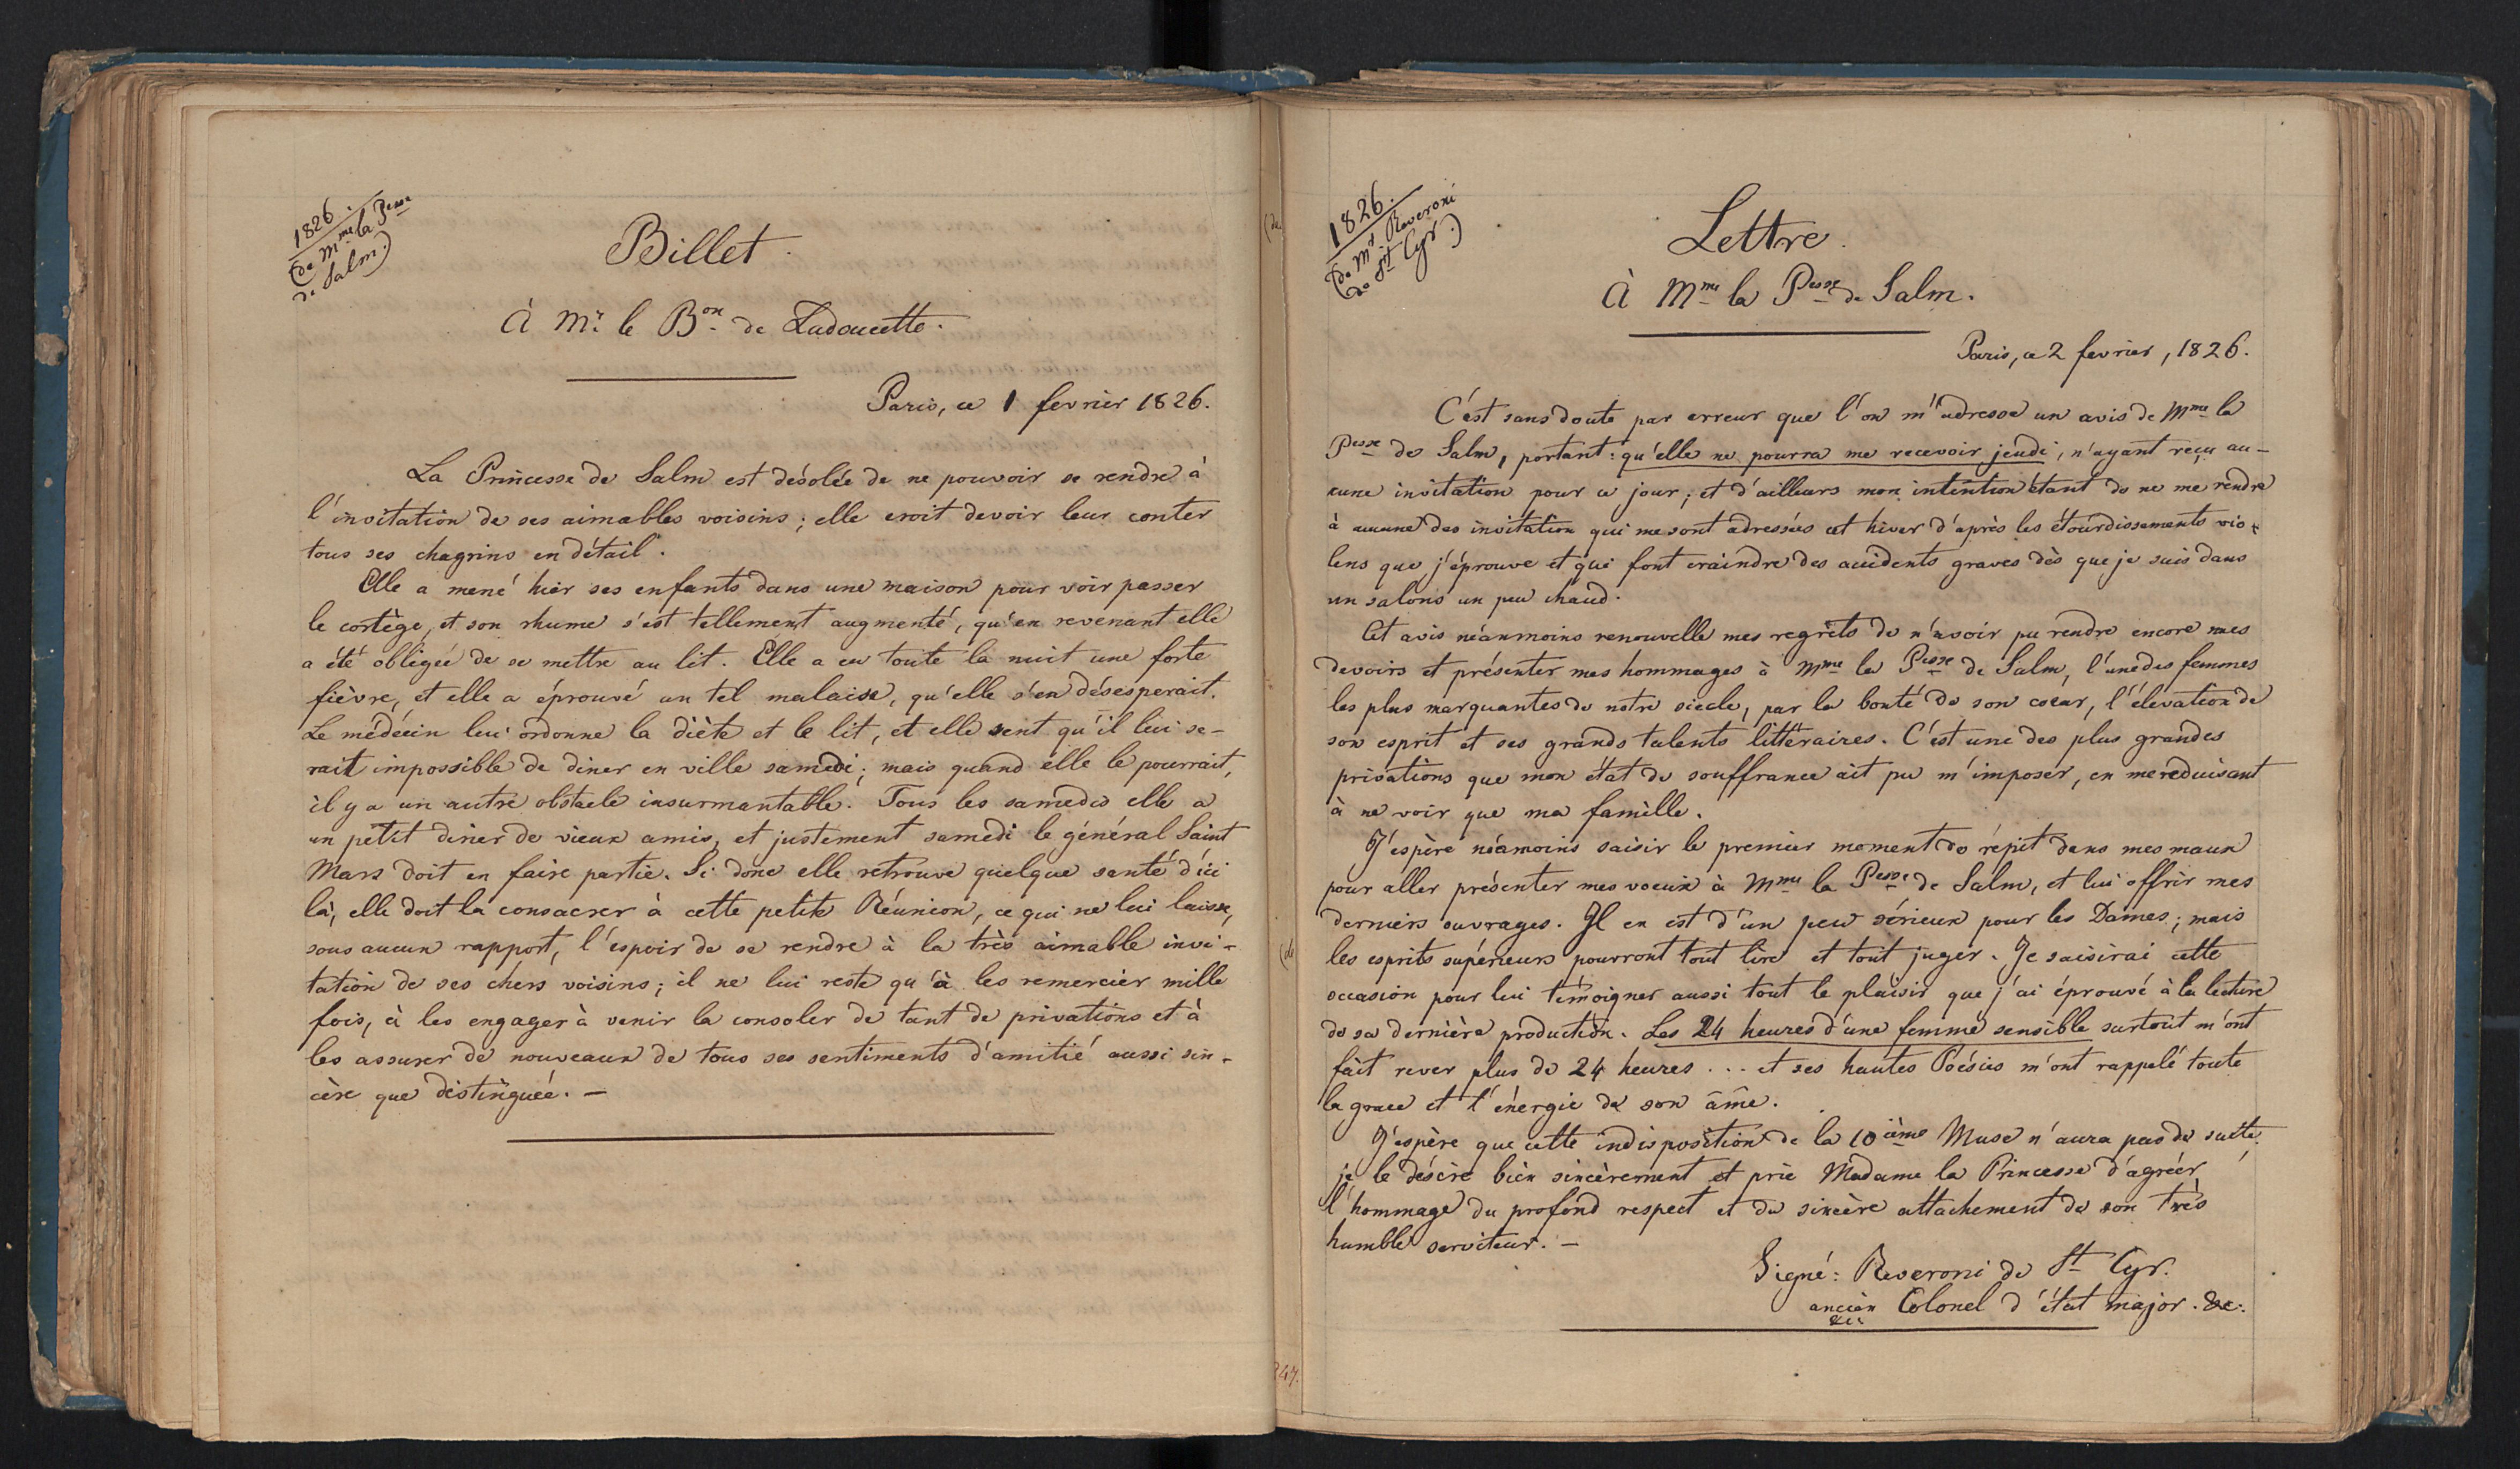 1826.
(de Mme la Pesse
de Salm.)
Billet.
À Mr. le Bon de Ladoucette.
Paris, ce 1 fevrier 1826.
La Princesse de Salm est désolée de ne pouvoir se rendre à
l'invitation de ses aimables voisins; elle croit devoir leur conter
tous ses chagrins en détail.
Elle a mené hier ses enfants dans une maison pour voir passer
le cortège, et son rhume s'est tellement augmenté, qu'en revenant elle
a été obligée de se mettre au lit. Elle a eu toute la nuit une forte
fièvre, et elle a éprouvé un tel malaise, qu'elle s'en désesperait.
Le médécin lui ordonne la diète et le lit, et elle sent qu'il lui se-
rait impossible de diner en ville samedi; mais quand elle le pourrait,
il y a un autre obstacle insurmontable. Tous les samedis elle a
un petit diner de vieux amis, et justement samedi le général Saint
Mars doit en faire partie. Si donc elle retrouve quelque santé d'ici
là, elle doit la consacrer à cette petite Réunion, ce qui ne lui laisse,
sous aucun rapport, l'espoir de se rendre à la très aimable invi-
tation de ses chers voisins; il ne lui reste qu'à les remercier mille
fois, à les engager à venir la consoler de tant de privations et à
les assurer de nouveaux de tous ses sentiments d'amitié aussi sin-
cère que distinguée. —
(de
(de
247.
1826.
(de Mr Reveroni
de St Cyr.)
Lettre.
À Mme la Pesse de Salm.
Paris, ce 2 fevrier, 1826.
C'est sans doute par erreur que l'on m'adresse un avis de Mme la
Pesse de Salm, portant: qu'elle ne pourra me recevoir jeudi, n'ayant reçu au-
cune invitation pour ce jour; et d'ailleurs mon intention étant de ne me rendre
à aucune des invitation qui me sont adressées cet hiver d'après les étourdissements vio-
lens que j'éprouve et qui font craindre des accidents graves dès que je suis dans
un salons un peu chaud.
Cet avis néanmoins renouvelle mes regrets de n'avoir pu rendre encore mes
devoirs et présenter mes hommages à Mme la Pesse de Salm, l'une des femmes
les plus marquantes de notre siecle, par la bonté de son coeur, l'élevation de
son esprit et ses grands talents littéraires. C'est une des plus grandes
privations que mon état de souffrance ait pu m'imposer, en me reduisant
à ne voir que ma famille.
J'espère néamoins saisir le premier moment de répit dans mes maux
pour aller présenter mes voeux à Mme la Pesse de Salm, et lui offrir mes
derniers ouvrages. Il en est d'un peu sérieux pour les Dames; mais
les esprits supérieurs pourront tout lire et tout juger. Je saisirai cette
occasion pour lui témoigner aussi tout le plaisir que j'ai éprouvé à la lecture
de sa dernière production. Les 24 heures d'une femme sensible surtout m'ont
fait rever plus de 24 heures ... et ses hautes Poésies m'ont rappelé toute
la grace et l'énergie de son âme.
J'espère que cette indisposition de la 10ième Muse n'aura pas de suite,
je le désire bien sincèrement et prie Madame la Princesse d'agréer
l'hommage du profond respect et du sincère attachement de son très
humble serviteur. —
Signé: Reveroni de St Cyr.
ancien Colonel d'état major. &c.
&c.